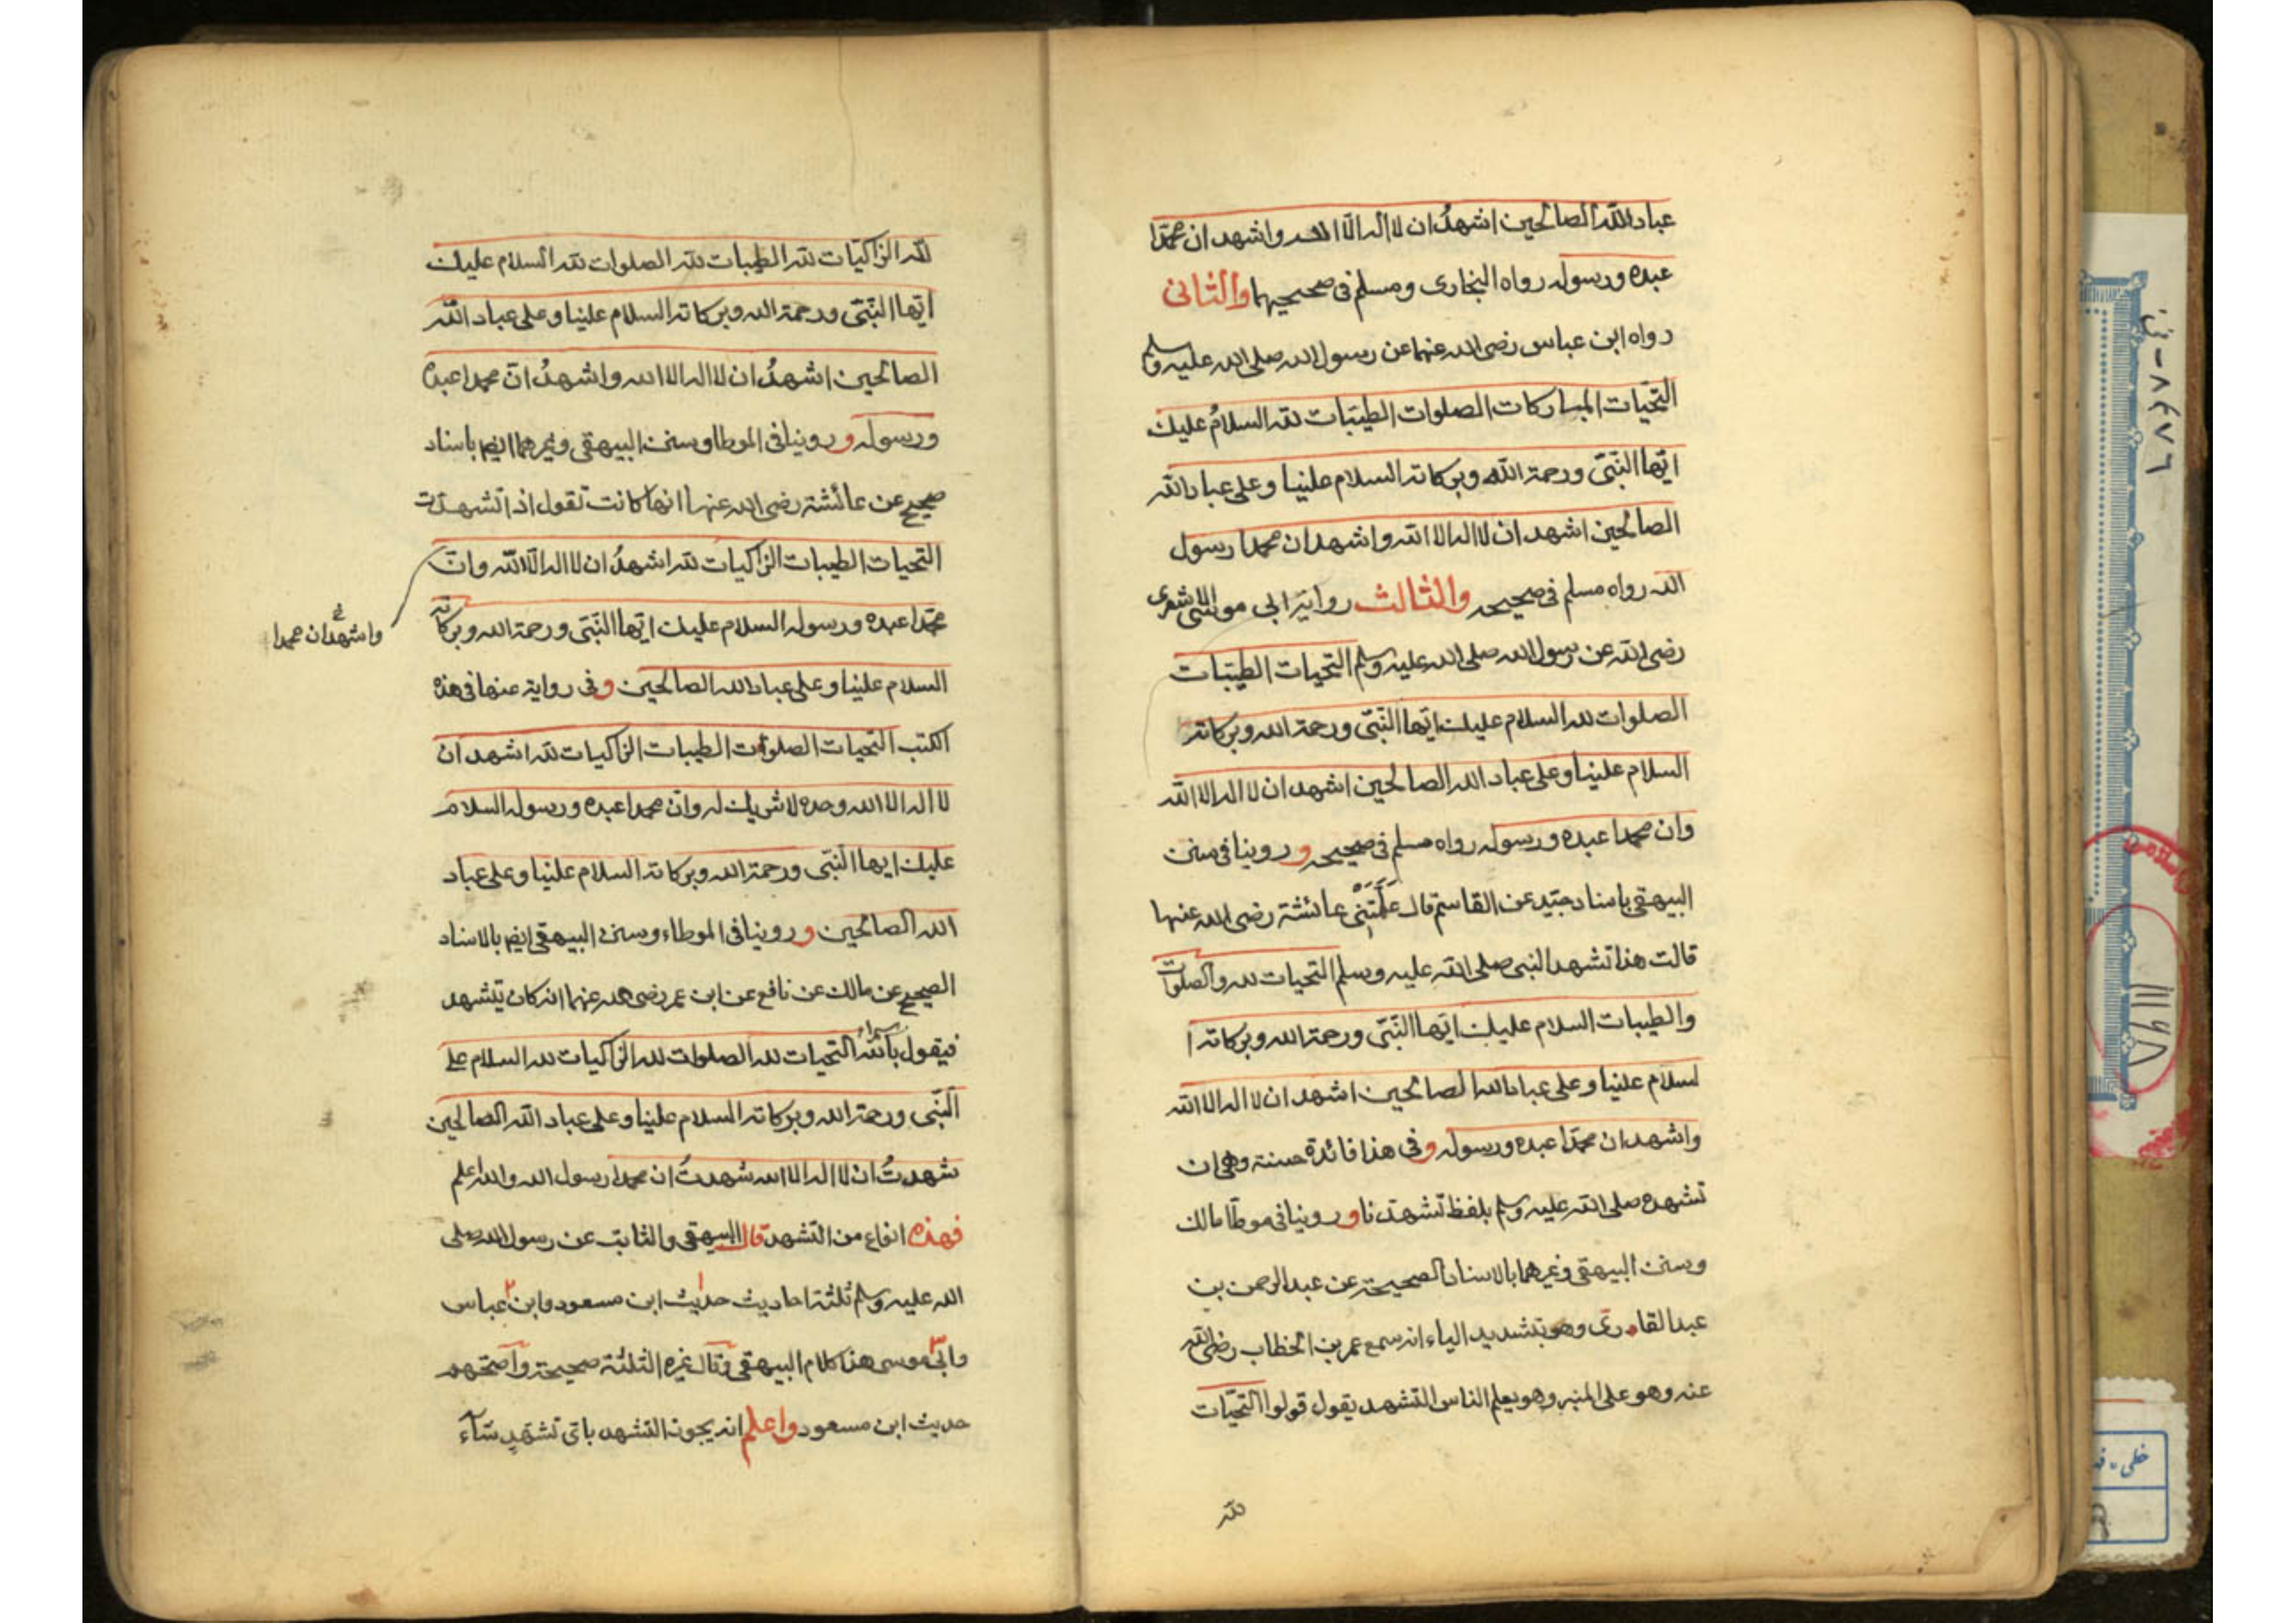 عباد الله الصالحين اشهدُ ان لا اله الّا الله واشهد ان محمّدا
عبده ورسوله رواه البخارى ومسلم فى صحيحيهما والثانى
رواه ابن عباس رضى الله عنهما عن رسول الله صلى الله عليه وسلم
التحيّات المباركات الصلوات الطيبات لله السلامُ عليك
ايّها النّبىّ ورحمة الله وبركاته السلام علينا وعلى عباد الله
الصالحين اشهد ان لا اله الا الله واشهد ان محمدا رسول
الله رواه مسلم فى صحيحه والثالث رواية ابى موسى الاشعرى
رضى الله عن رسول الله صلى الله عليه وسلم التحيات الطيبات
الصلوات لله السلام عليك ايّها النّبىّ ورحمة الله وبركاته
السلام علينا وعلى عباد الله الصالحين اشهد ان لا اله الا الله
وان محمدا عبده ورسوله رواه مسلم فى صحيحه وروينا فى سنن
البيهقى باسناد جيّد عن القاسم قال عَلَّمَتْنى عائشة رضى الله عنها
قالت هذا تشهد النبى صلى الله عليه وسلم التحيات لله والصلوات
والطيبات السلام عليك ايّها النّبىّ ورحمة الله وبركاته ا
لسلام علينا وعلى عباد الله الصالحين اشهد ان لا اله الا الله
واشهد ان محمّدا عبده ورسوله وفى هذا فائدة حسنة وهى ان
تشهده صلى الله عليه وسلم بلفظ تشهدنا وروينا فى موطّا مالك
وسنن البيهقى وغيرهما بالاسناد الصحيحة عن عبد الرحمن بن
عبد القارى وهو بتشديد الياء انه سمع عمر بن الخطاب رضى الله
عنه وهو على المنبر وهو يعلم الناس التشهد يقول قولوا التحيّات
لله
لله الزّاكيات لله الطيبات لله الصلوات لله السلام عليك
ايّها النّبىّ ورحمة الله وبركاته السلام علينا وعلى عباد الله
الصالحين اشهدُ ان لا اله الا الله واشهدُ انّ محمدا عبده
ورسوله وروينا فى الموطا وسنن البيهقى وغيرهما ايضا باسناد
صحيح عن عائشة رضى الله عنها انها كانت تقول اذا تشهدت
التحيات الطيبات الزاكيات لله اشهدُ ان لا اله الّا الله وانّ
واشهد ان محمدا
محمّدا عبده ورسوله السلام عليك ايّها النّبىّ ورحمة الله وبركاته
السلام علينا وعلى عباد الله الصالحين وفى رواية عنها فى هذه
الكتب التحيات الصلوات الطيبات الزاكيات لله اشهد ان
لا اله الا الله وحده لا شريك له وانّ محمدا عبده ورسوله السلام
عليك ايها النّبى ورحمة الله وبركاته السلام علينا وعلى عباد
الله الصالحين وروينا فى الموطاء وسنن البيهقى ايضا بالاسناد
الصحيح عن مالك عن نافع عن ابن عمر رضى الله عنهما انه كان يتشهد
فيقول بسم الله التحيات لله الصلوات لله الزاكيات لله السلام على
النّبى ورحمة الله وبركاته السلام علينا وعلى عباد الله الصالحين
شهدتُ ان لا اله الا الله شهدتُ ان محمدا رسول الله والله اعلم
فهذه انواع من التشهد قال البيهقى والثابت عن رسول الله صلى
الله عليه وسلم ثلثة احاديث حديث ابن مسعود وابن عباس
وابى موسى هذا كلام البيهقى وقال غيره الثلثة صحيحة واصحّهم
حديث ابن مسعود واعلم انه يجوز التشهد باىّ تشهّدٍ شآء
٨٤٧٦
١١١٤٨
خطى